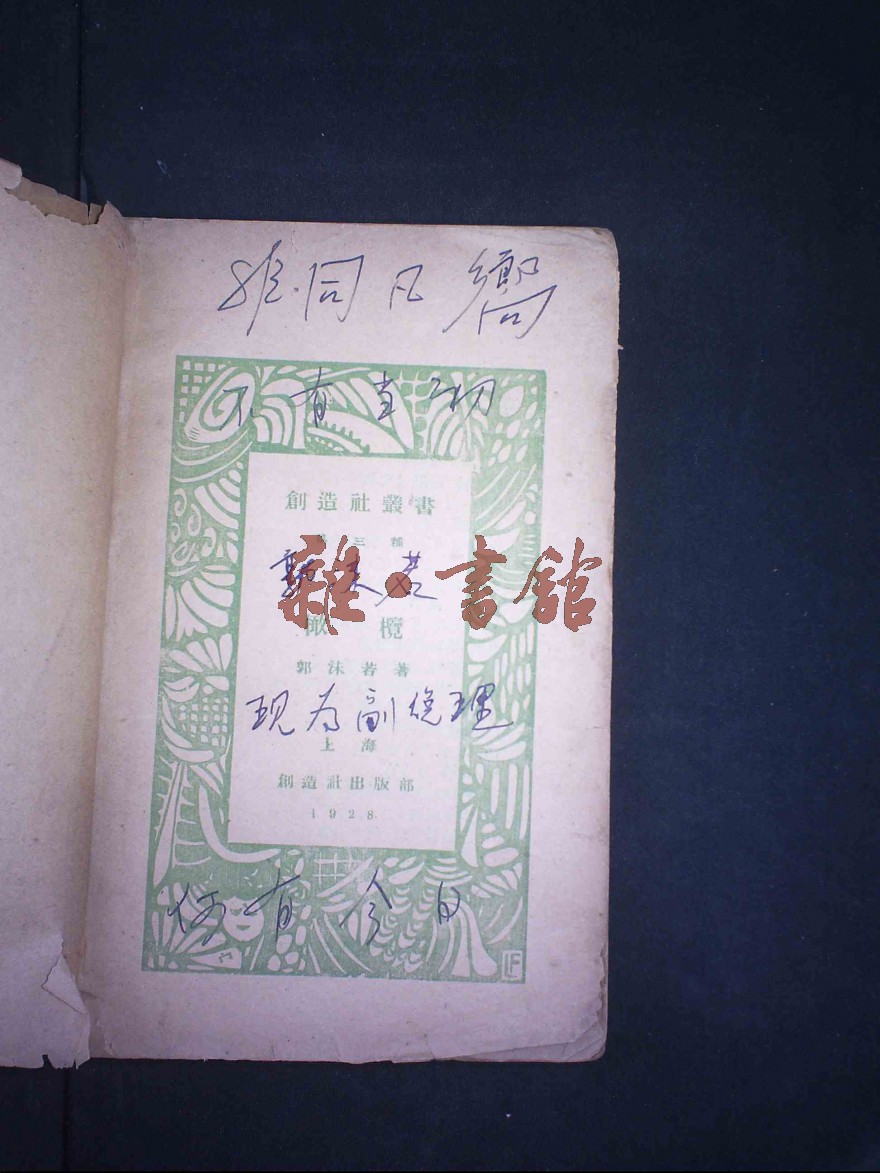 非同凡響
不有當初
創造社叢書
第三種
郭沫若
雜·書館
橄欖
郭沫若著
現为副总理
上海
創造社出版部
1928
何有今日
LF